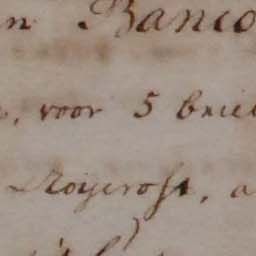 n Banco
, voor 5 brie
Roijcrost, a